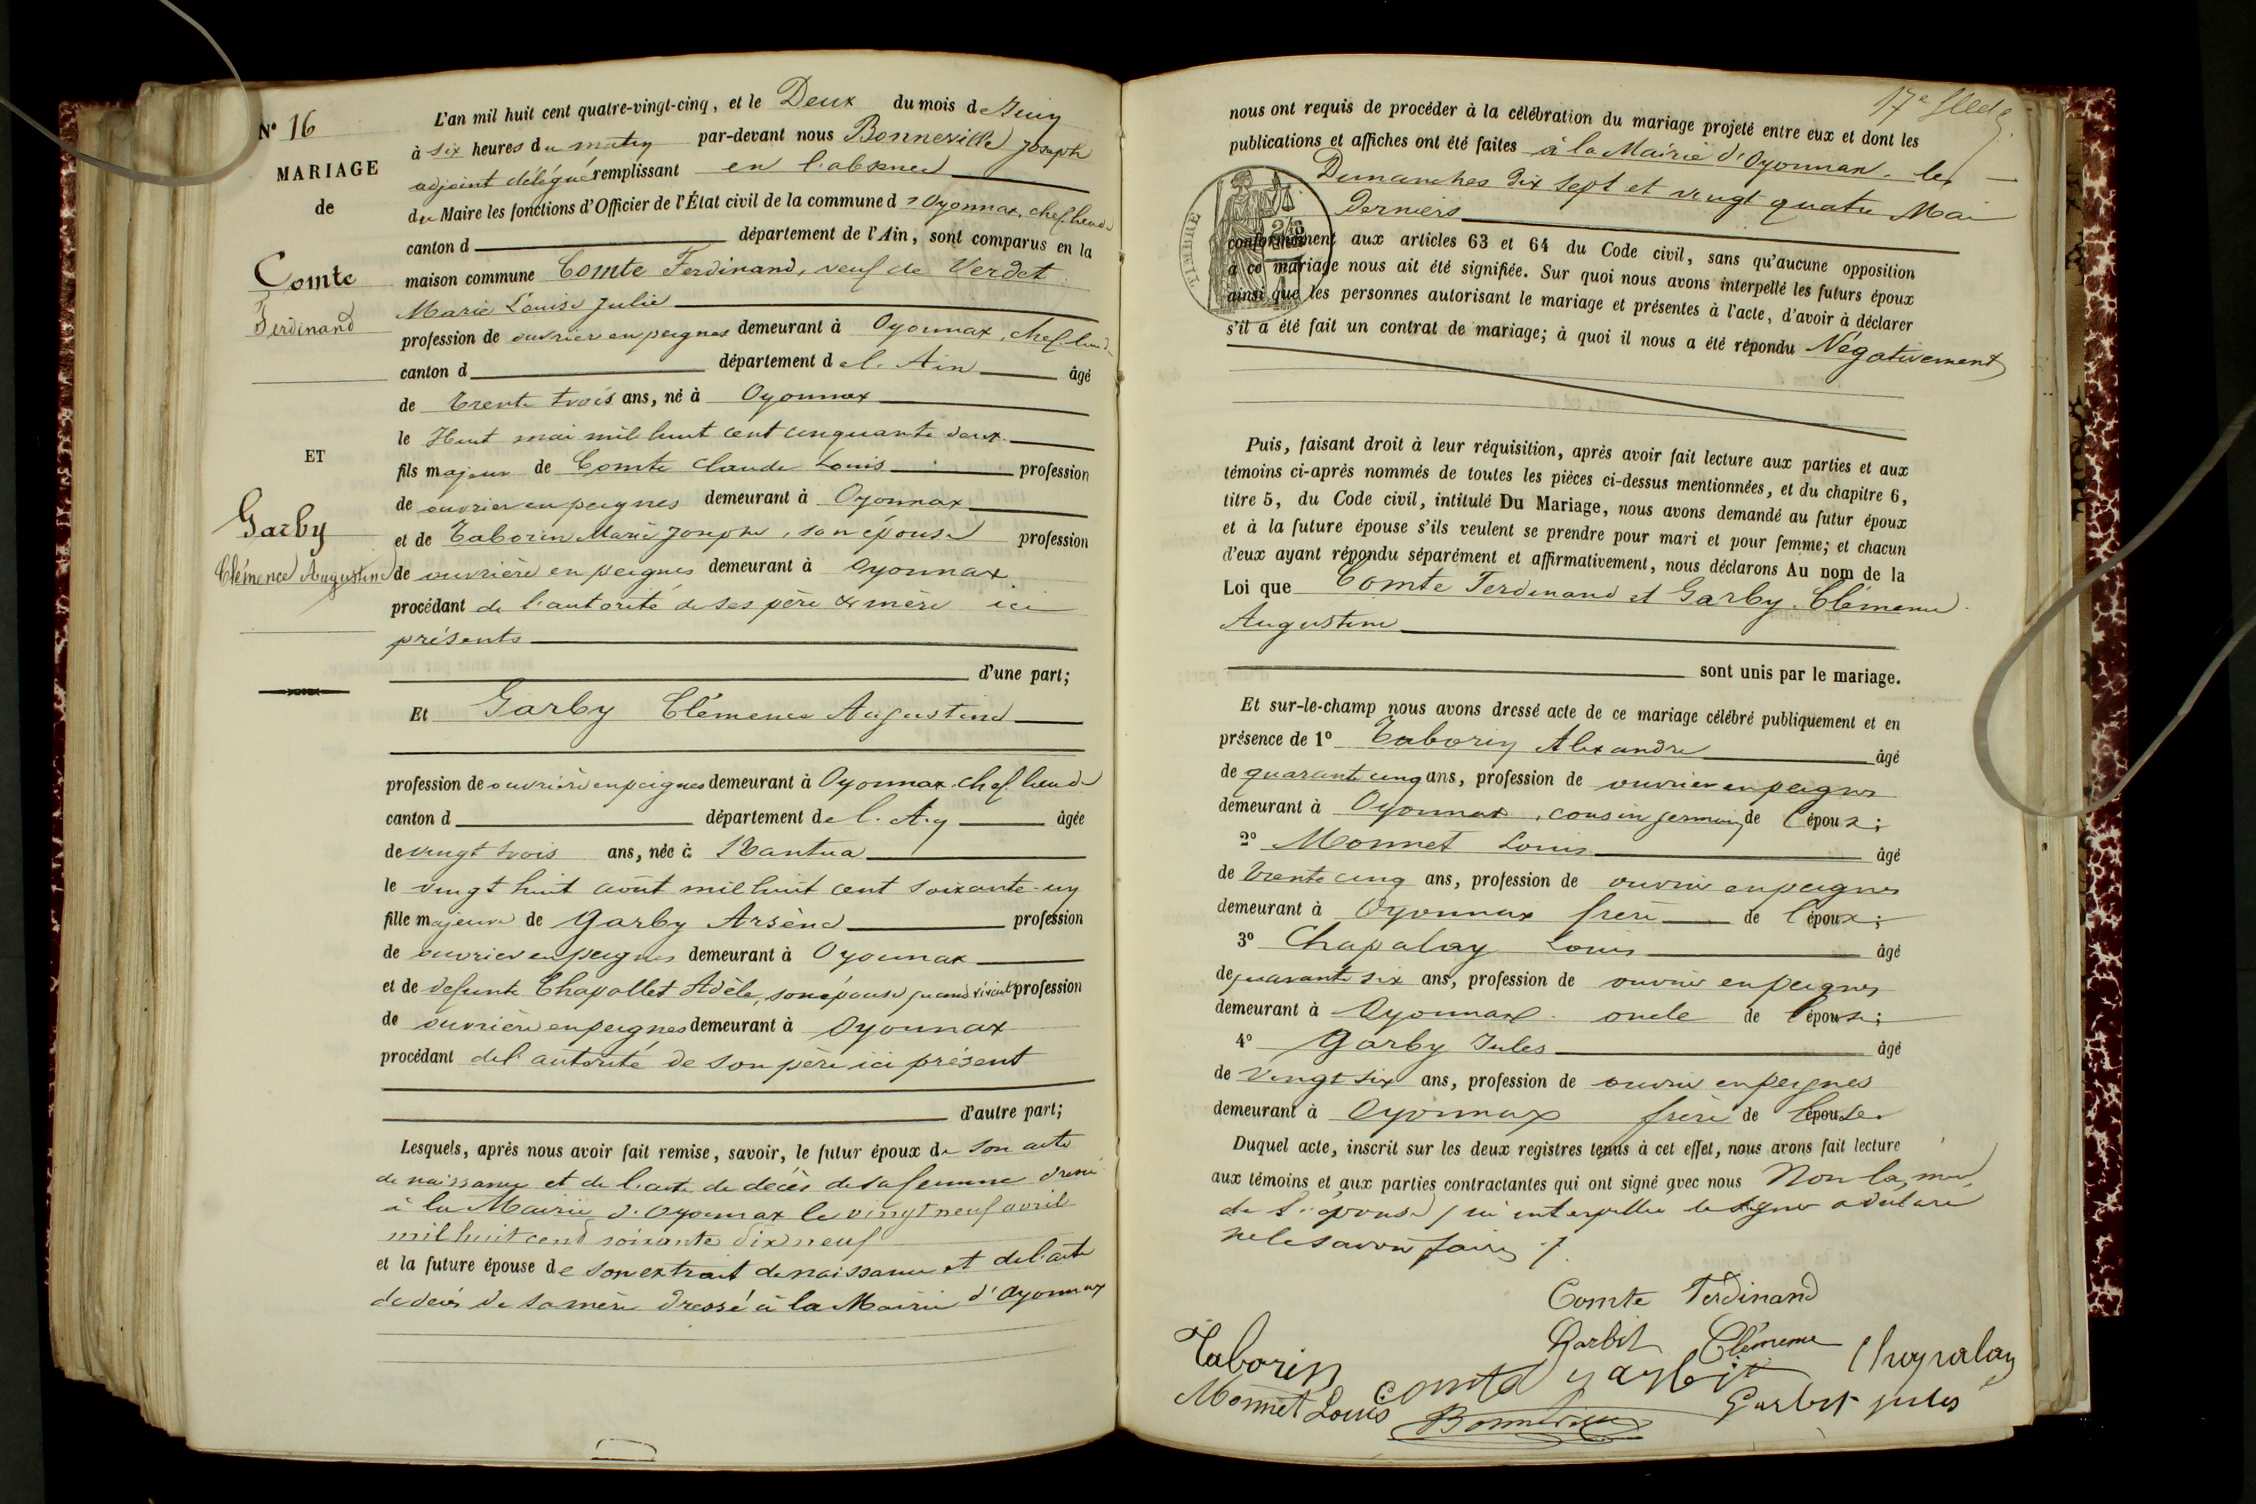 N° 16
MARIAGE
de
Comte
Ferdinand
ET
Garby
Clémence Augustine
L'an mil huit cent quatre-vingt-cinq, et le Deux du mois de Juin
à six heures du matin par-devant nous Bonneville Joseph
adjoint délégué remplissant en l'absence
du Maire les fonctions d'Officier de l'État civil de la commune d'Oyonnax, chef lieu de
canton d département de l'Ain, sont comparus en la
maison commune Comte Ferdinand, veuf de Verdet
Marie Louise Julie
profession de ouvrier en peignes demeurant à Oyonnax, chef lieu de
canton d département de l'Ain âgé
de trente trois ans, né à Oyonnax
le Huit mai mil huit cent cinquante deux
fils majeur de Comte Claude Louis profession
de ouvrier en peignes demeurant à Oyonnax
et de Taborin Marie Josephe, son épouse profession
de ouvrière en peignes demeurant à Oyonnax
procédant de l'autorité de ses père & mère ici
présents
d'une part;
Et Garby Clémence Augustine
profession de ouvrière en peignes demeurant à Oyonnax chef lieu de
canton d département de l'Ain âgée
de vingt trois ans, née à Nantua
le vingt huit août mil huit cent soixante-un
fille majeure de Garby Arsène profession
de ouvrier en peignes demeurant à Oyonnax
et de défunte Chapallet Adèle, son épouse quand vivait profession
de ouvrière en peignes demeurant à Oyonnax
procédant de l'autorité de son père ici présent
d'autre part;
Lesquels, après nous avoir fait remise, savoir, le futur époux de son acte
de naissance et de l'acte de décès de sa femme dressé
à la Mairie d'Oyonnax le vingt neuf avril
mil huit cent soixante dix neuf
et la future épouse de son extrait de naissance et de l'acte
de décès de sa mère dressé à la Mairie d'Oyonnax
nous ont requis de procéder à la célébration du mariage projeté entre eux et dont les
publications et affiches ont été faites à la Mairie d'Oyonnax les
Dimanches dix sept et vingt quatre Mai
derniers
TIMBRE
conformément aux articles 63 et 64 du Code civil, sans qu'aucune opposition
à ce mariage nous ait été signifiée. Sur quoi nous avons interpellé les futurs époux
ainsi que les personnes autorisant le mariage et présentes à l'acte, d'avoir à déclarer
s'il a été fait un contrat de mariage; à quoi il nous a été répondu Négativement
Puis, faisant droit à leur réquisition, après avoir fait lecture aux parties et aux
témoins ci-après nommés de toutes les pièces ci-dessus mentionnées, et du chapitre 6,
titre 5, du Code civil, intitulé Du Mariage, nous avons demandé au futur époux
et à la future épouse s'ils veulent se prendre pour mari et pour femme; et chacun
d'eux ayant répondu séparément et affirmativement, nous déclarons Au nom de la
Loi que Comte Ferdinand et Garby Clémence
Augustine
sont unis par le mariage.
Et sur-le-champ nous avons dressé acte de ce mariage célébré publiquement et en
présence de 1° Taborin Alexandre âgé
de quarante cinq ans, profession de ouvrier en peignes
demeurant à Oyonnax, cousin germain de l'époux;
2° Monnet Louis âgé
de trente cinq ans, profession de ouvrier en peignes
demeurant à Oyonnax frère de l'époux;
3° Chapalay Louis âgé
de quarante six ans, profession de ouvrier en peignes
demeurant à Oyonnax oncle de l'épouse;
4° Garby Jules âgé
de vingt six ans, profession de ouvrier en peignes
demeurant à Oyonnax frère de l'épouse
Duquel acte, inscrit sur les deux registres tenus à cet effet, nous avons fait lecture
aux témoins et aux parties contractantes qui ont signé avec nous Non la mère
de l'épouse qui interpellée de signer a déclaré
ne le savoir faire
Comte Ferdinand
Garbit Clémence
Taborin
Comte Garbit
Monnet Louis
Garbit jules
Bonneville